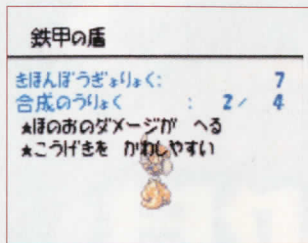 鉄甲の盾
きほんぼうぎょりょく: 7
合成のうりょく : 2/ 4
★ほのおのダメージが へる
★こうげきを かわしやすい